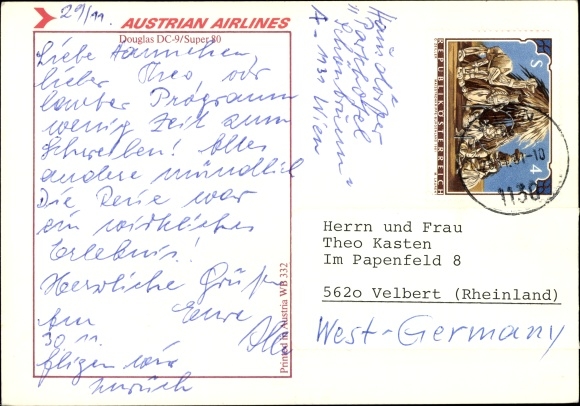 29/11.
AUSTRIAN AIRLINES
Douglas DC-9/Super 80
Liebe Hannchen,
lieber Theo, vor
lauter Programm
wenig Zeit zum
Schreiben! Alles
andere mündlich
Die Reise war
ein wirkliches
Erlebnis!
Herzliche Grüße
Eure
Am
30 11.
fliegen wir
zurück
Printed in Austria WB 332
"Parkhotel
Schönbrunn"
A-1130 Wien
REPUBLIK ÖSTERREICH
S 4
1130
Herrn und Frau
Theo Kasten
Im Papenfeld 8
562o Velbert (Rheinland)
West-Germany